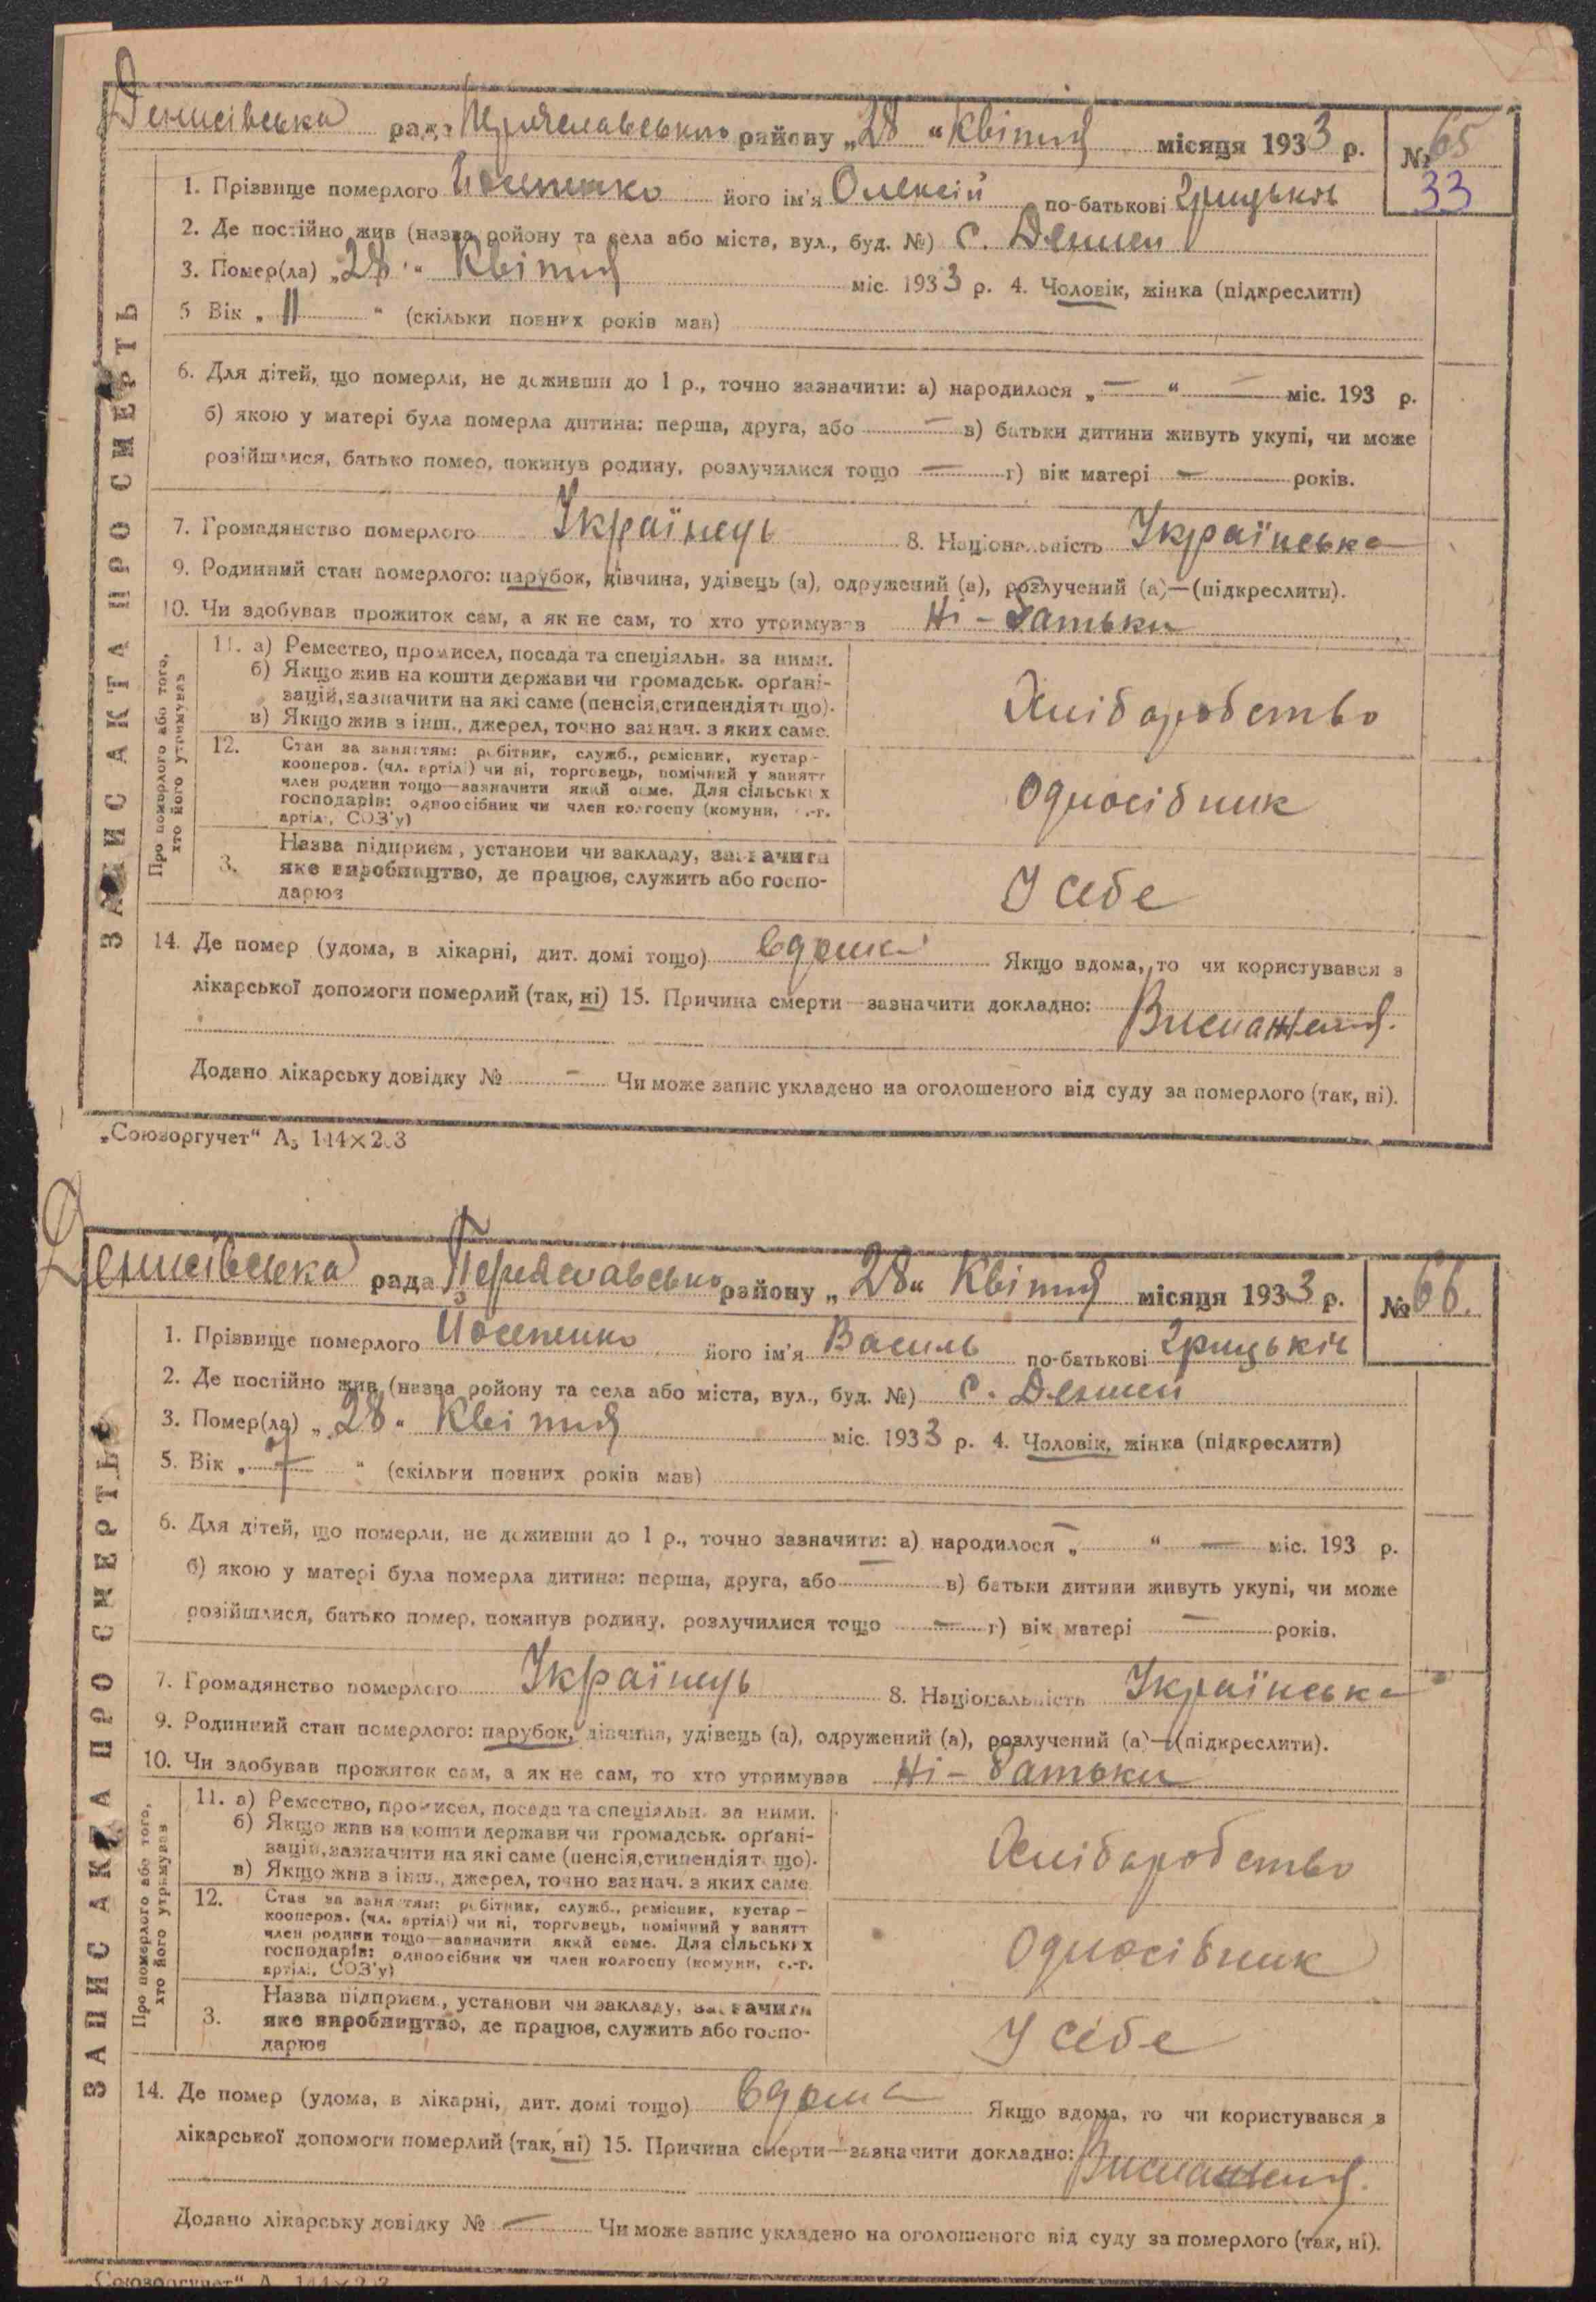 Денисівська рада Переяславського району „28“ Квітня місяця 1933 р. № 65
33
1. Прізвище померлого Йосипенко його ім'я Олексій по-батькові Грицьков
2. Де постійно жив (назва ройону та села або міста, вул., буд. №) с. Дениси
3. Помер(ла) „28“ Квітня міс. 1933 р. 4. Чоловік, жінка (підкреслити)
5 Вік „11“ (скільки повних років мав)
6. Для дітей, що померли, не доживши до 1 р., точно зазначити: а) народилося „—“ — міс. 193 р.
б) якою у матері була померла дитина: перша, друга, або — в) батьки дитини живуть укупі, чи може
розійшлися, батько помер, покинув родину, розлучилися тощо — г) вік матері — років.
7. Громадянство померлого Українець 8. Національність Українська
9. Родинний стан померлого: парубок, дівчина, удівець (а), одружений (а), розлучений (а)—(підкреслити).
10. Чи здобував прожиток сам, а як не сам, то хто утримував Ні - батьки
11. а) Ремество, промисел, посада та спеціяльн. за ними.
б) Якщо жив на кошти держави чи громадськ. орґані-
зацій, зазначити на які саме (пенсія, стипендія тощо).
в) Якщо жив з інш., джерел, точно зазнач. з яких саме.
Хліборобство
12. Стан за заняттям: робітник, служб., ремісник, кустар-
кооперов. (чл. артілі) чи ні, торговець, помічний у занятт
член родини тощо—зазначити який саме. Для сільських
господарів: одноосібник чи член колгоспу (комуни, с.-г.
артілі, СОЗ'у)
Одноосібник
3. Назва підприєм., установи чи закладу, зазначити
яке виробництво, де працює, служить або госпо-
дарює
У себе
14. Де помер (удома, в лікарні, дит. домі тощо) вдома Якщо вдома, то чи користувався з
лікарської допомоги померлий (так, ні) 15. Причина смерти—зазначити докладно: Виснаження.
Додано лікарську довідку № - Чи може запис укладено на оголошеного від суду за померлого (так, ні).
ЗАПИС АКТА ПРО СМЕРТЬ
Про померлого або того,
хто його утримував
„Союзоргучет“ А5 144×203
Денисівська рада Переяславсько району „28“ Квітня місяця 1933 р. № 66.
1. Прізвище померлого Йосипенко його ім'я Василь по-батькові Грицьків
2. Де постійно жив (назва ройону та села або міста, вул., буд. №) с. Дениси
3. Помер(ла) „28“ Квітня міс. 1933 р. 4. Чоловік, жінка (підкреслити)
5. Вік „7“ (скільки повних років мав)
6. Для дітей, що померли, не доживши до 1 р., точно зазначити: а) народилося „—“ — міс. 193 р.
б) якою у матері була померла дитина: перша, друга, або — в) батьки дитини живуть укупі, чи може
розійшлися, батько помер, покинув родину, розлучилися тощо — г) вік матері — років.
7. Громадянство померлого Українець 8. Національність Українська
9. Родинний стан померлого: парубок, дівчина, удівець (а), одружений (а), розлучений (а)—(підкреслити).
10. Чи здобував прожиток сам, а як не сам, то хто утримував Ні - батьки
11. а) Ремество, промисел, посада та спеціяльн. за ними.
б) Якщо жив на кошти держави чи громадськ. орґані-
зацій, зазначити на які саме (пенсія, стипендія тощо).
в) Якщо жив з інш., джерел, точно зазнач. з яких саме
Хліборобство
12. Стан за заняттям: робітник, служб., ремісник, кустар-
кооперов. (чл. артілі) чи ні, торговець, помічний у занятт
член родини тощо—зазначити який саме. Для сільських
господарів: одноосібник чи член колгоспу (комуни, с.-г.
артілі, СОЗ'у)
Одноосібник
3. Назва підприєм., установи чи закладу, зазначити
яке виробництво, де працює, служить або госпо-
дарює
У себе
14. Де помер (удома, в лікарні, дит. домі тощо) вдома Якщо вдома, то чи користувався з
лікарської допомоги померлий (так, ні) 15. Причина смерти—зазначити докладно: Виснаження.
Додано лікарську довідку № — Чи може запис укладено на оголошеного від суду за померлого (так, ні).
ЗАПИС АКТА ПРО СМЕРТЬ
Про померлого або того,
хто його утримував
„Союзоргучет“ А 144×203